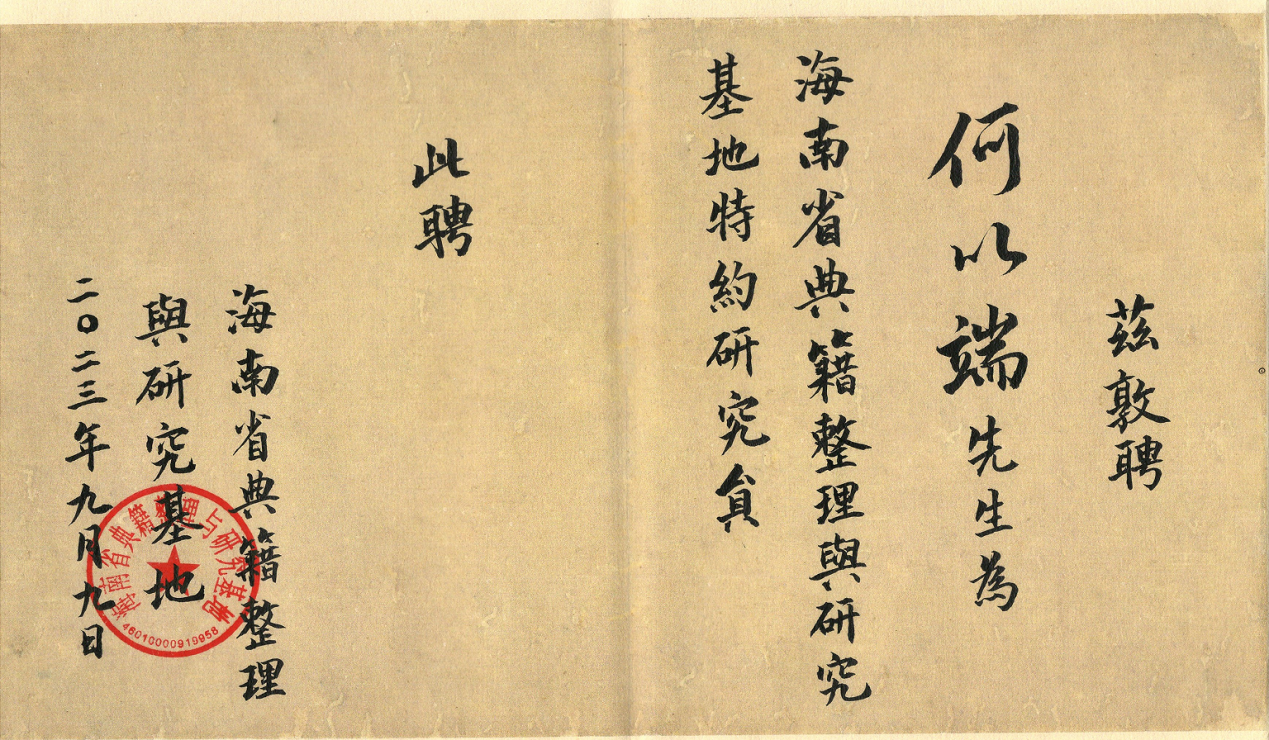 茲敦聘
何以端先生為
海南省典籍整理與研究
基地特約研究員
此聘
海南省典籍整理
與研究基地
二〇二三年九月九日
海南省典籍整理与研究基地
46010000919958